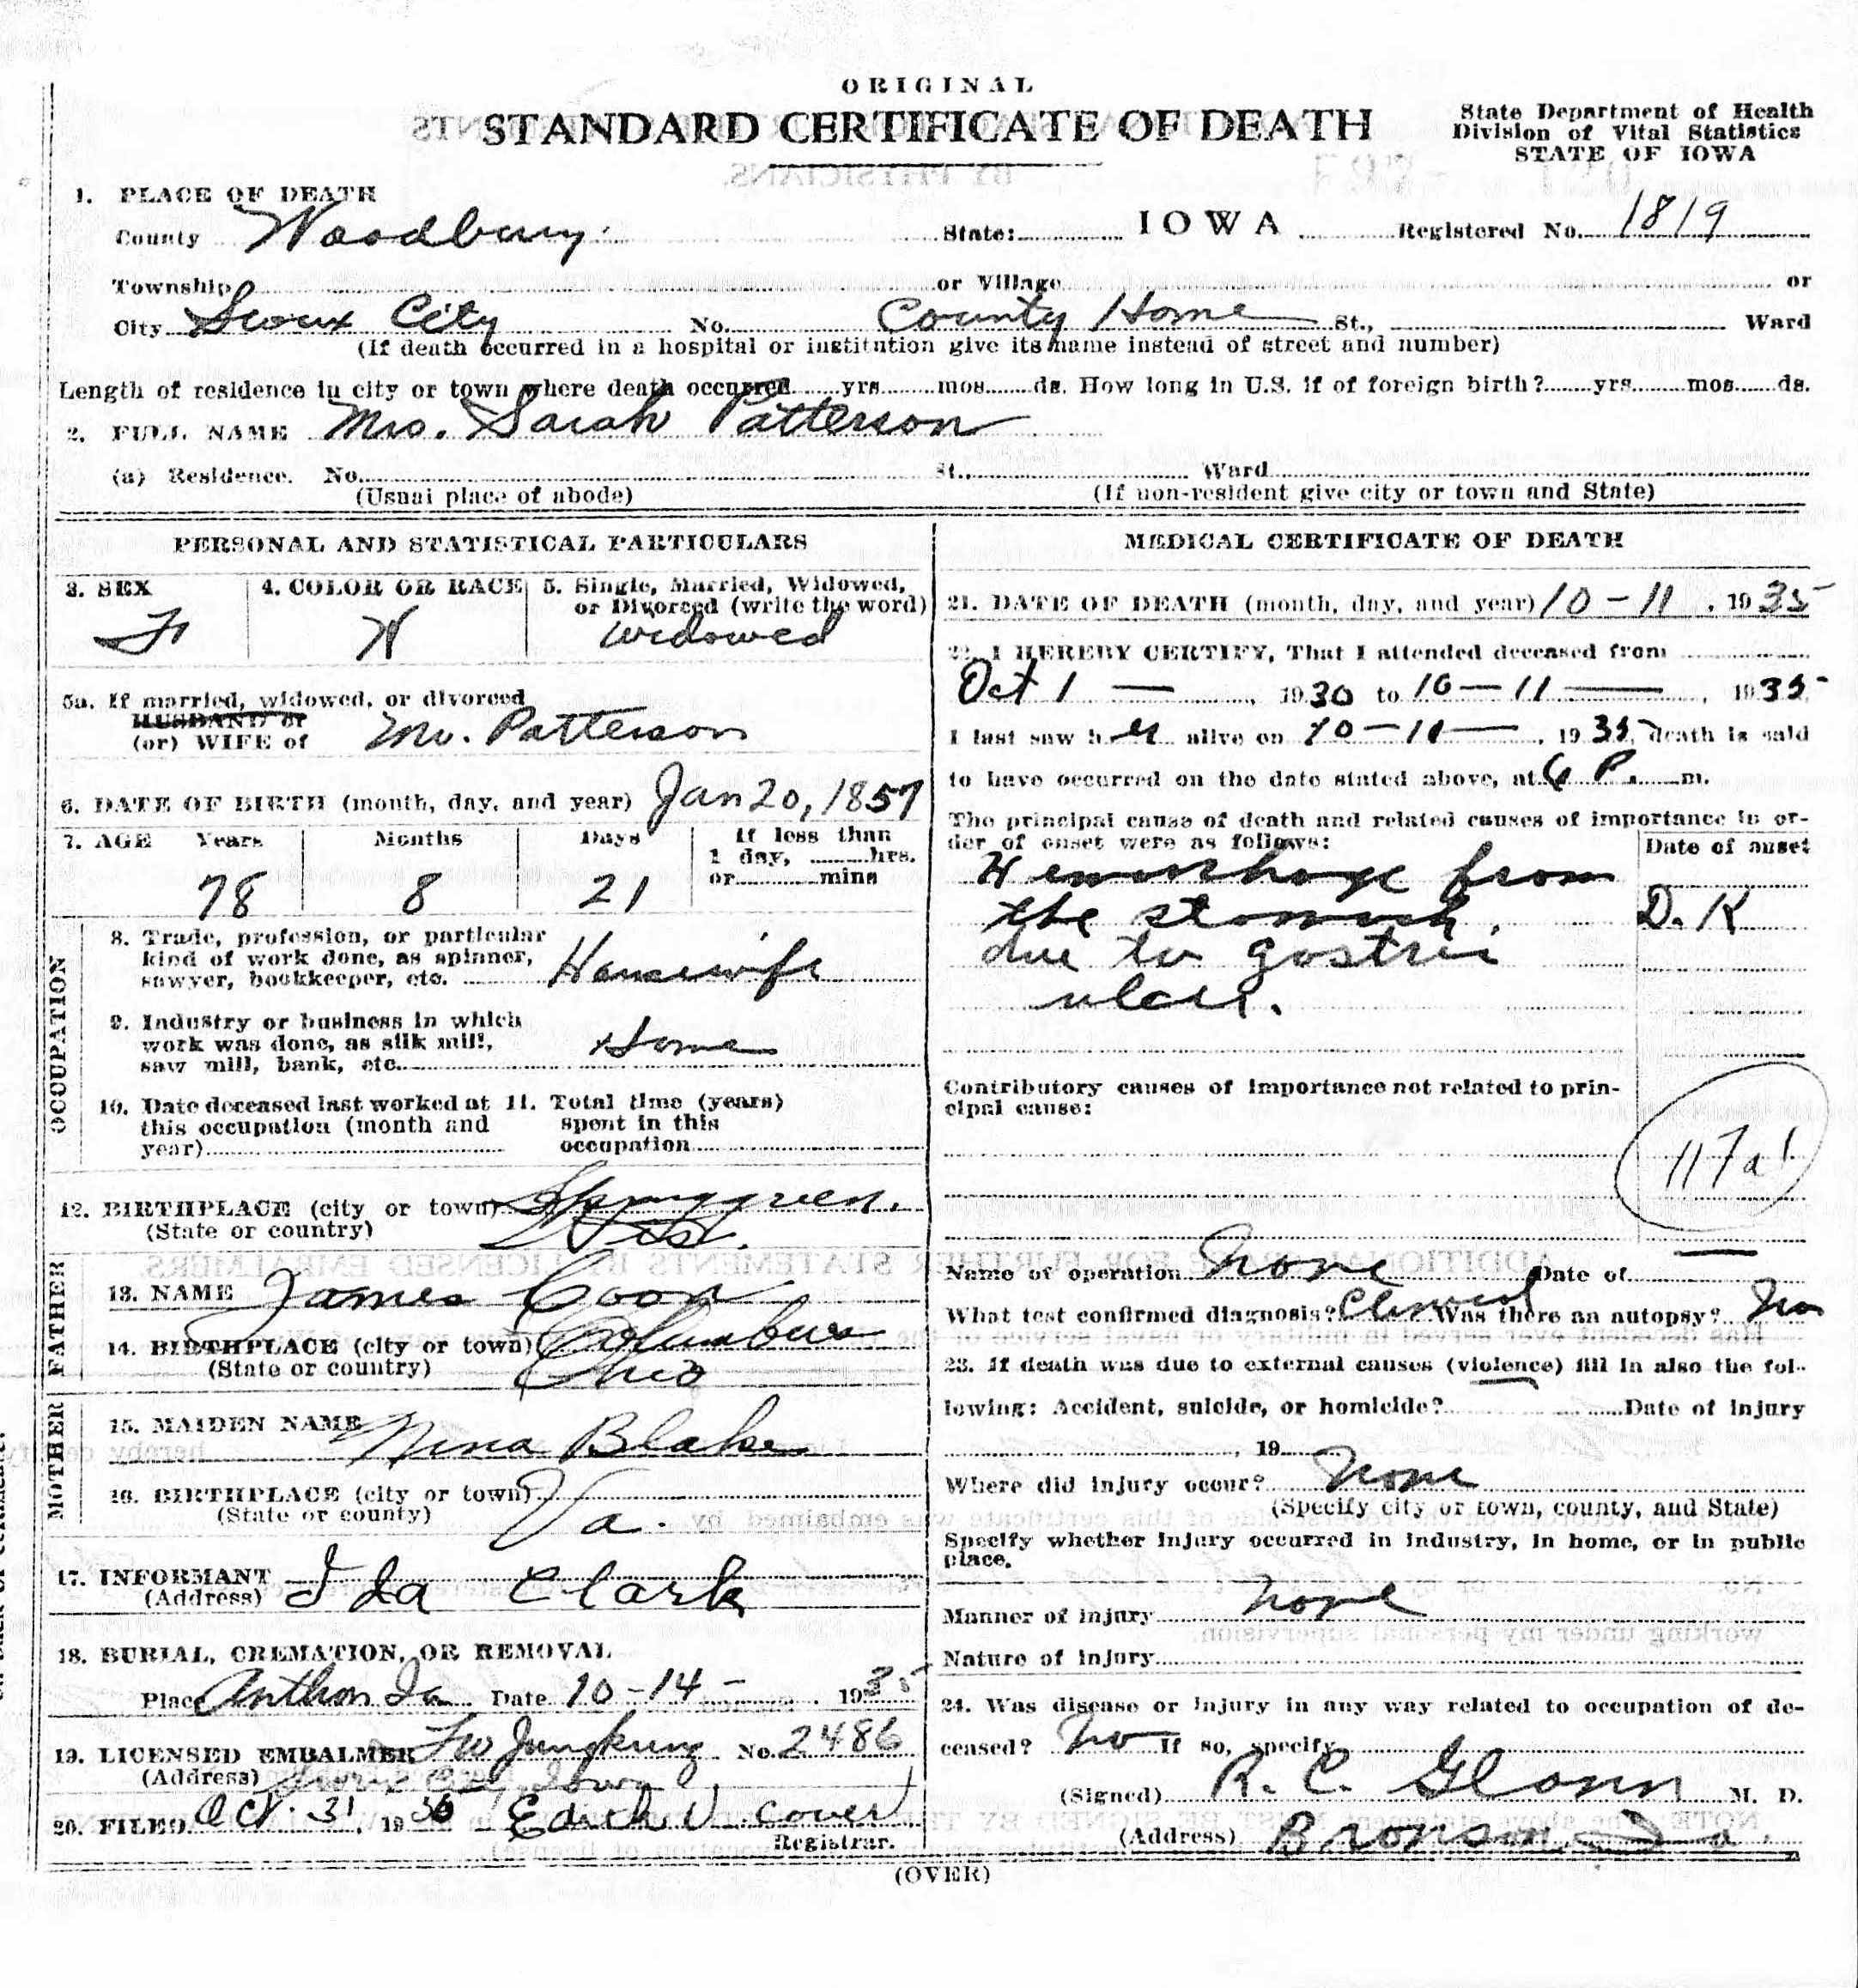 ORIGINAL
STANDARD CERTIFICATE OF DEATH
State Department of Health
Division of Vital Statistics
STATE OF IOWA
1. PLACE OF DEATH
County Woodbury State: IOWA Registered No. 1819
Township or Village or
City Sioux City No. County Home St., Ward
(If death occurred in a hospital or institution give its name instead of street and number)
Length of residence in city or town where death occurred yrs mos ds. How long in U.S. if of foreign birth? yrs. mos ds.
2. FULL NAME Mrs. Sarah Patterson
(a) Residence. No. St., Ward
(Usual place of abode) (If non-resident give city or town and State)
PERSONAL AND STATISTICAL PARTICULARS
3. SEX 4. COLOR OR RACE 5. Single, Married, Widowed,
or Divorced (write the word)
F W Widowed
5a. If married, widowed, or divorced
HUSBAND of
(or) WIFE of Mr. Patterson
6. DATE OF BIRTH (month, day, and year) Jan 20, 1857
7. AGE Years Months Days If less than
1 day, hrs.
or mins
78 8 21
OCCUPATION
8. Trade, profession, or particular
kind of work done, as spinner,
sawyer, bookkeeper, etc. Housewife
9. Industry or business in which
work was done, as silk mill,
saw mill, bank, etc. Home
10. Date deceased last worked at
this occupation (month and
year)
11. Total time (years)
spent in this
occupation
12. BIRTHPLACE (city or town) Springgreen.
(State or country) Wis.
FATHER
13. NAME James Coon
14. BIRTHPLACE (city or town) Columbus
(State or country) Ohio
MOTHER
15. MAIDEN NAME Nina Blake
16. BIRTHPLACE (city or town)
(State or county) Va.
17. INFORMANT Ida Clark
(Address)
18. BURIAL, CREMATION, OR REMOVAL
Place Anthon Ia Date 10-14- 1935
19. LICENSED EMBALMER No. 2486
(Address) Sioux City, Iowa
20. FILED Oct. 31, 19 Edith V. Cover
Registrar.
MEDICAL CERTIFICATE OF DEATH
21. DATE OF DEATH (month, day, and year) 10-11, 1935
22. I HEREBY CERTIFY, That I attended deceased from
Oct 1 — , 1930 to 10-11 — , 1935
I last saw her alive on 10-11 — , 1935, death is said
to have occurred on the date stated above, at 6 P. m.
The principal cause of death and related causes of importance in or-
der of onset were as follows:
Date of onset
Hemorrhage from
the stomach, D. K
due to gastric
ulcer.
Contributory causes of importance not related to prin-
cipal cause:
117a
Name of operation None Date of
What test confirmed diagnosis? Clinical Was there an autopsy? No
23. If death was due to external causes (violence) fill in also the fol-
lowing: Accident, suicide, or homicide? Date of injury
, 19
Where did injury occur? None
(Specify city or town, county, and State)
Specify whether injury occurred in industry, in home, or in public
place.
Manner of injury None
Nature of injury
24. Was disease or injury in any way related to occupation of de-
ceased? No If so, specify
(Signed) R. C. Glann M. D.
(Address) Bronson, Ia.
(OVER)